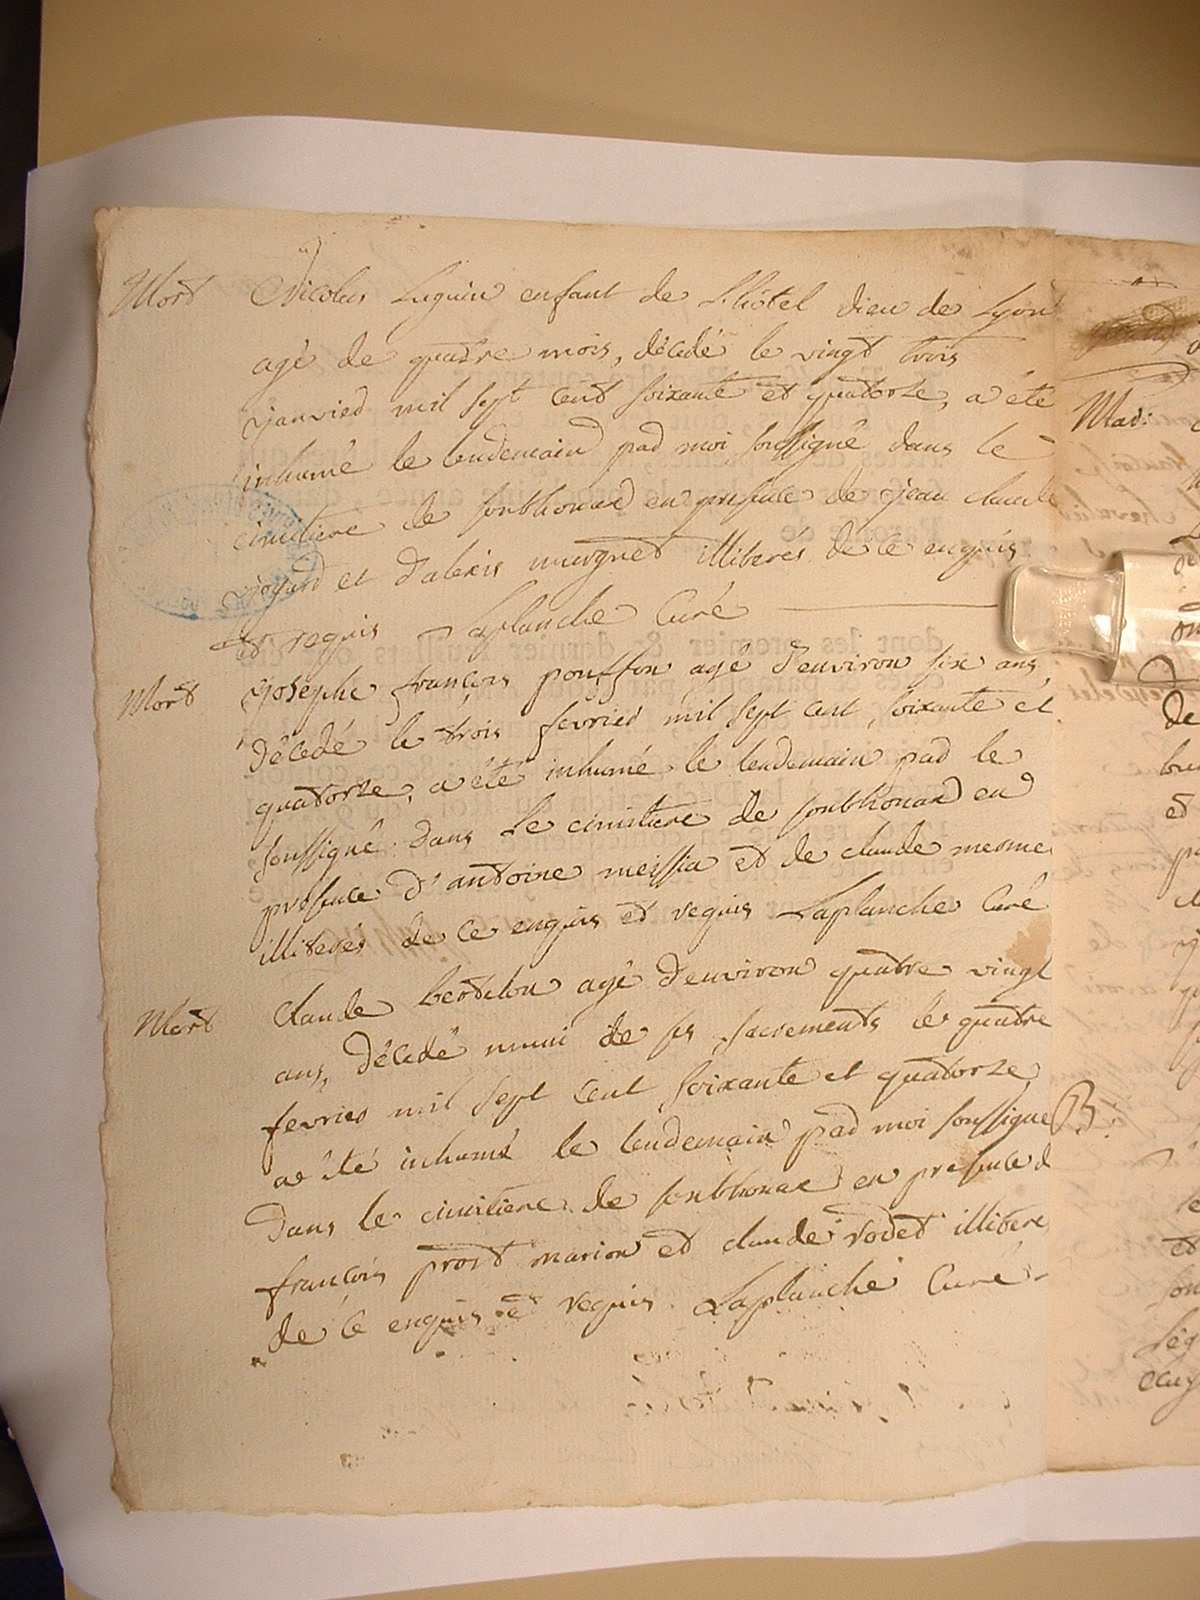 Mort Nicolas Luquin enfant de L'hôtel dieu de Lyon
agé de quatre mois, décedé le vingt trois
janvier mil sept cent soixante et quatorze, a été
inhumé le lendemain par moi soussigné dans le
cimitiere de fontthouar en presence de jean claude
joyard et d'alexis muygnet illiterés de ce enquis
et requis Laplanche Curé
Mort joseph françois pouffon agé d'environ six ans,
décedé le trois fevrier mil sept cent soixante et
quatorze, a été inhumé le lendemain par le
soussigné dans le cimitiere de fontthouar en
presence d'antoine meissia et de claude mesme
illiterés de ce enquis et requis Laplanche Curé
Mort Claude berthelon agé d'environ quatre vingt
ans, décedé muni de ses sacrements le quatre
fevrier mil sept cent soixante et quatorze,
a été inhumé le lendemain par moi soussigné
Dans le cimitiere de fontthouar en presence d
françois prost marion et claude rodet illitere
de ce enquis et requis Laplanche Curé
Mad:
B.